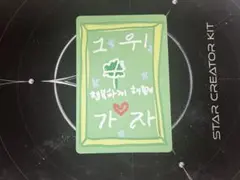 그 위!
행복하게 해줄게
가 자
STAR CREATOR KIT